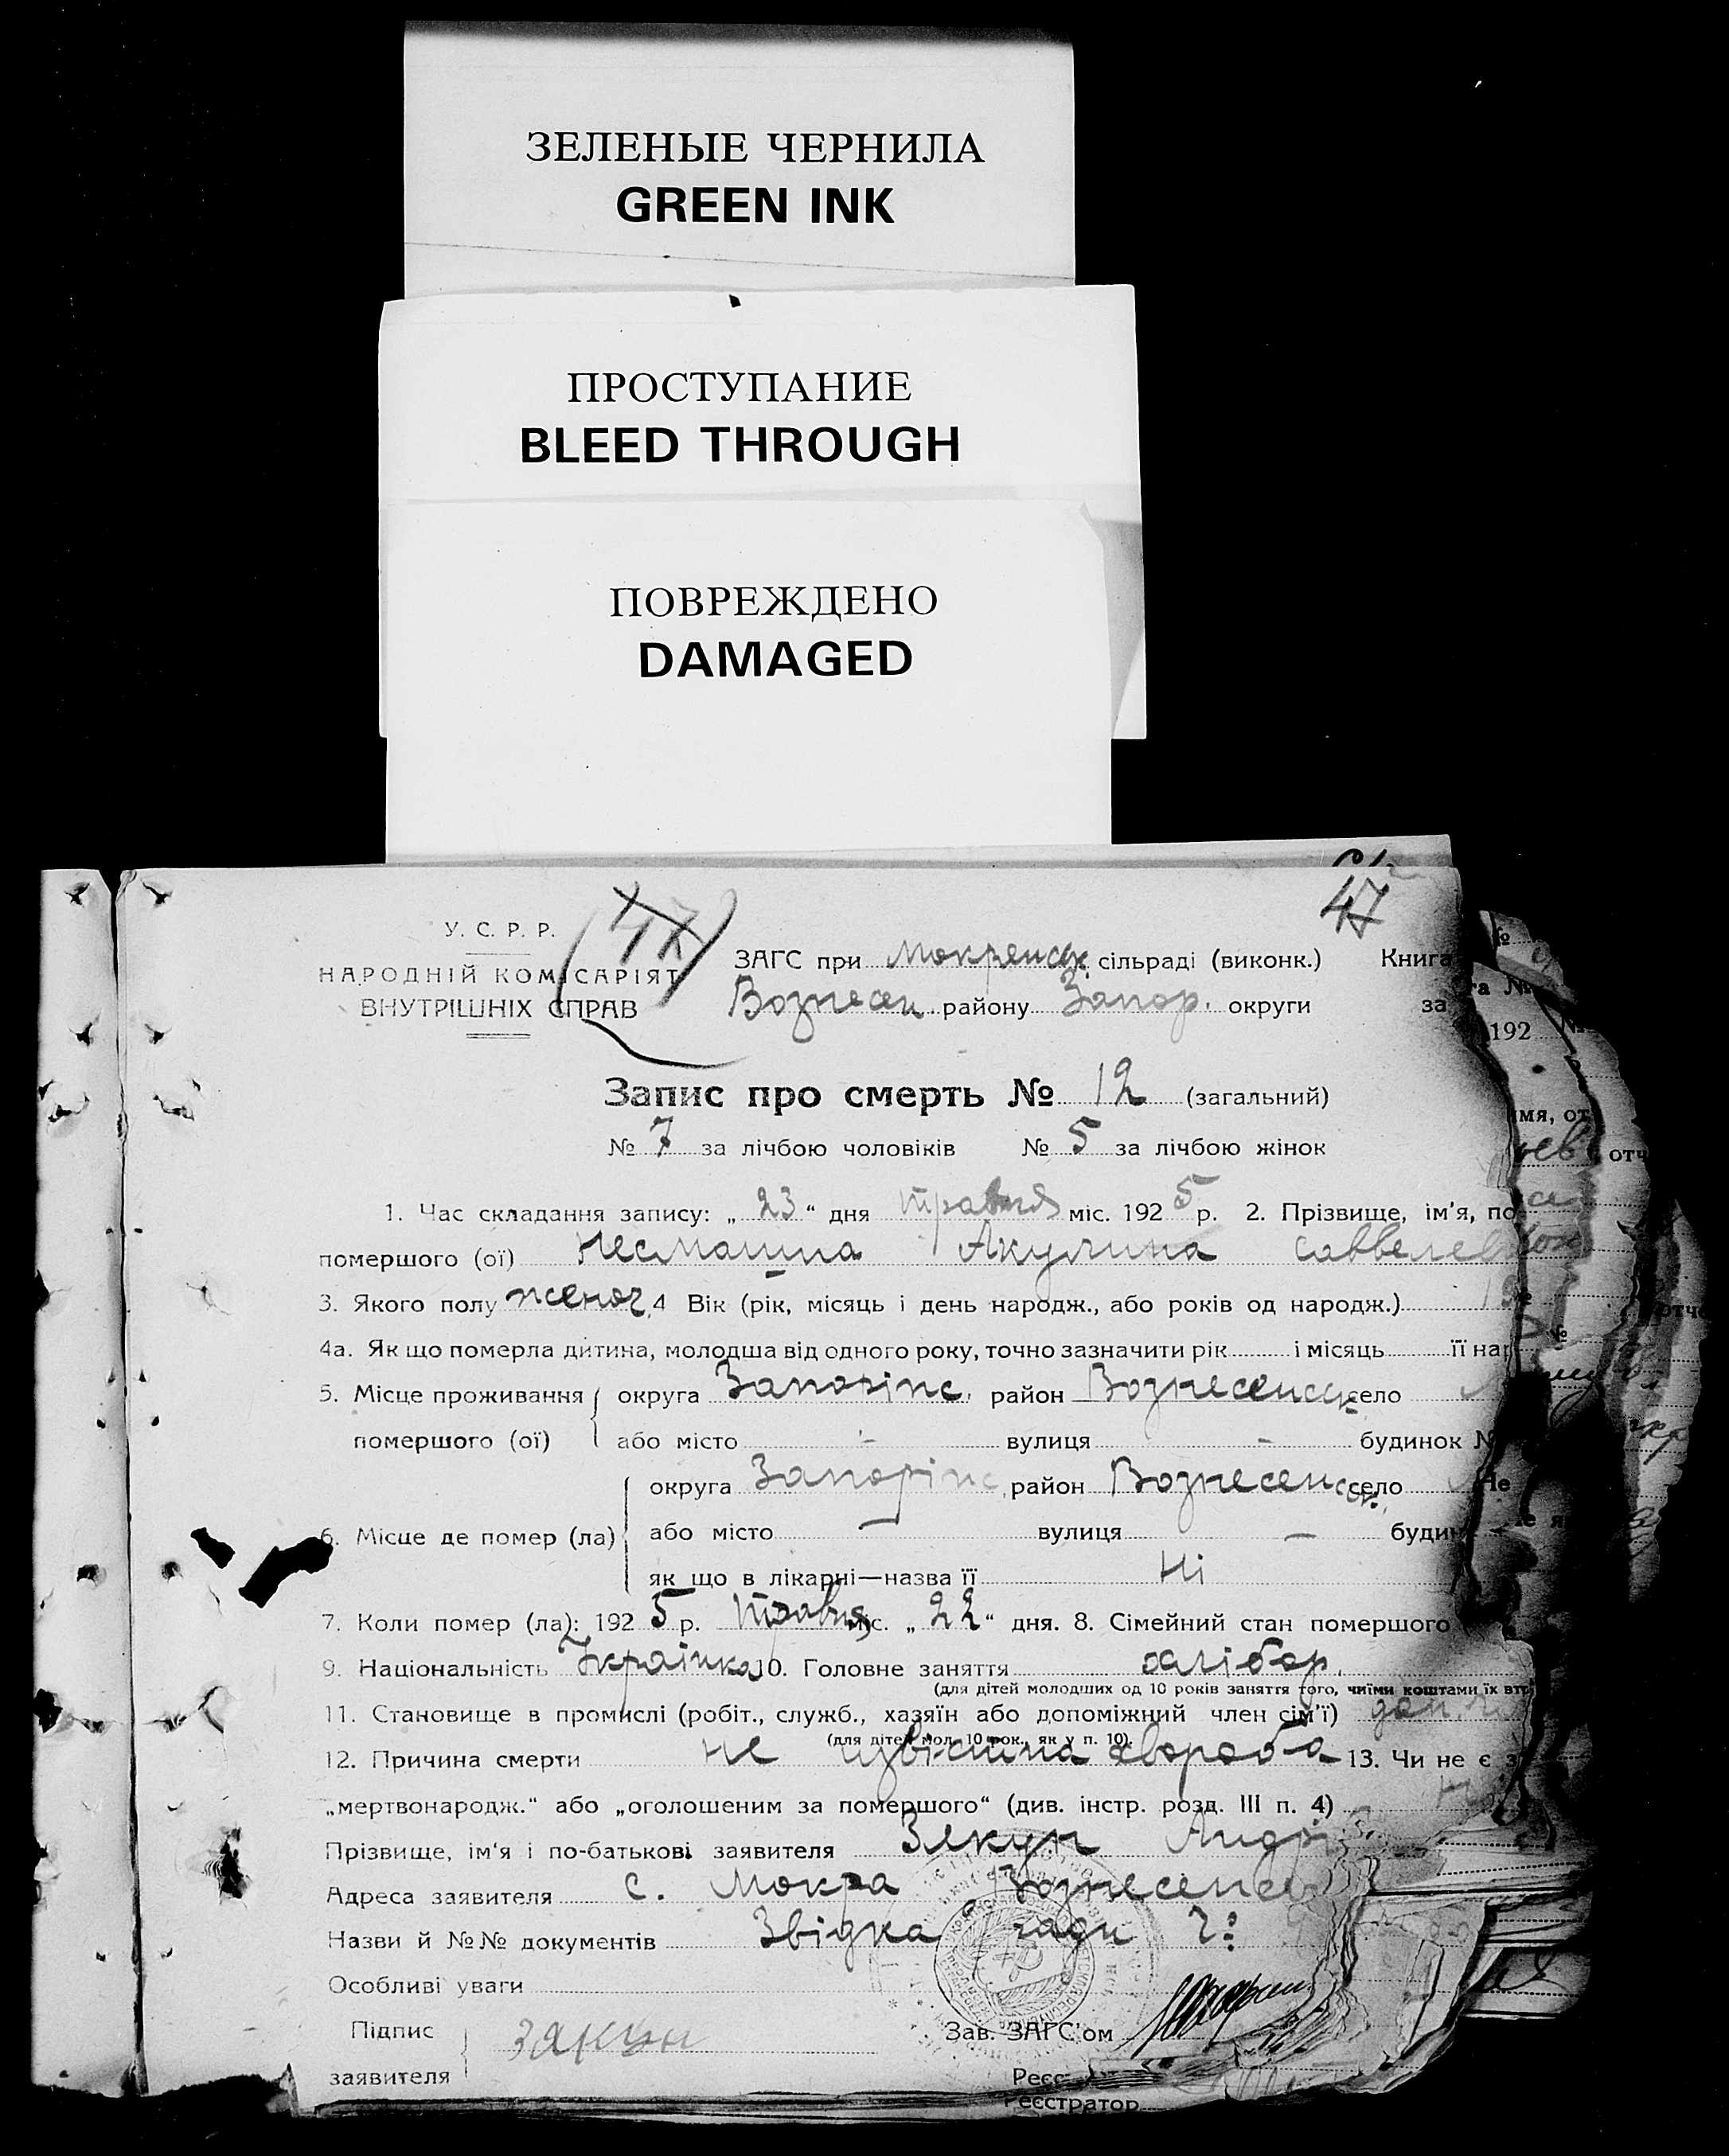 ЗЕЛЕНЫЕ ЧЕРНИЛА
GREEN INK
ПРОСТУПАНИЕ
BLEED THROUGH
ПОВРЕЖДЕНО
DAMAGED
47
У. С. Р. Р. 47
НАРОДНІЙ КОМІСАРІЯТ
ВНУТРІШНІХ СПРАВ
ЗАГС при Мокрянськ. сільраді (виконк.) Книга
Вознесен. району Запор. округи за
192
Запис про смерть № 12 (загальний)
№ 7 за лічбою чоловіків № 5 за лічбою жінок
1. Час складання запису: „ 23 “ дня травня міс. 192 5 р. 2. Прізвище, ім’я, по
помершого (ої) Несмашна Акулина
3. Якого полу женоч. 4 Вік (рік, місяць і день народж., або років од народж.)
4а. Як що померла дитина, молодша від одного року, точно зазначити рік і місяць її на
5. Місце проживання округа Запоріпс. район Вознесенськ село
помершого (ої) або місто - вулиця - будинок №
округа Запоріпс. район Вознесенськ. село
6. Місце де помер (ла) або місто — вулиця — будин
як що в лікарні—назва її Ні
7. Коли помер (ла): 192 5 р. травня міс. „ 22 “ дня. 8. Сімейний стан помершого
9. Національність Українка 10. Головне заняття хлібор.
(для дітей молодших од 10 років заняття того, чиїми коштами їх вт
11. Становище в промислі (робіт., служб., хазяїн або допоміжний член сім’ї) доп.
(для дітей мол. 10 рок., як у п. 10).
12. Причина смерти не ізвістна хвороба 13. Чи не є з
„мертвонародж.“ або „оголошеним за помершого“ (див. інстр. розд. III п. 4)
Прізвище, ім‘я і по-батькові заявителя Зякун Андр
Адреса заявителя с. Мокра Вознесенс
Назви й №№ документів Звідка
Особливі уваги
Підпис
заявителя Закун
Зав. ЗАГС’ом
Реєс
Реєстратор